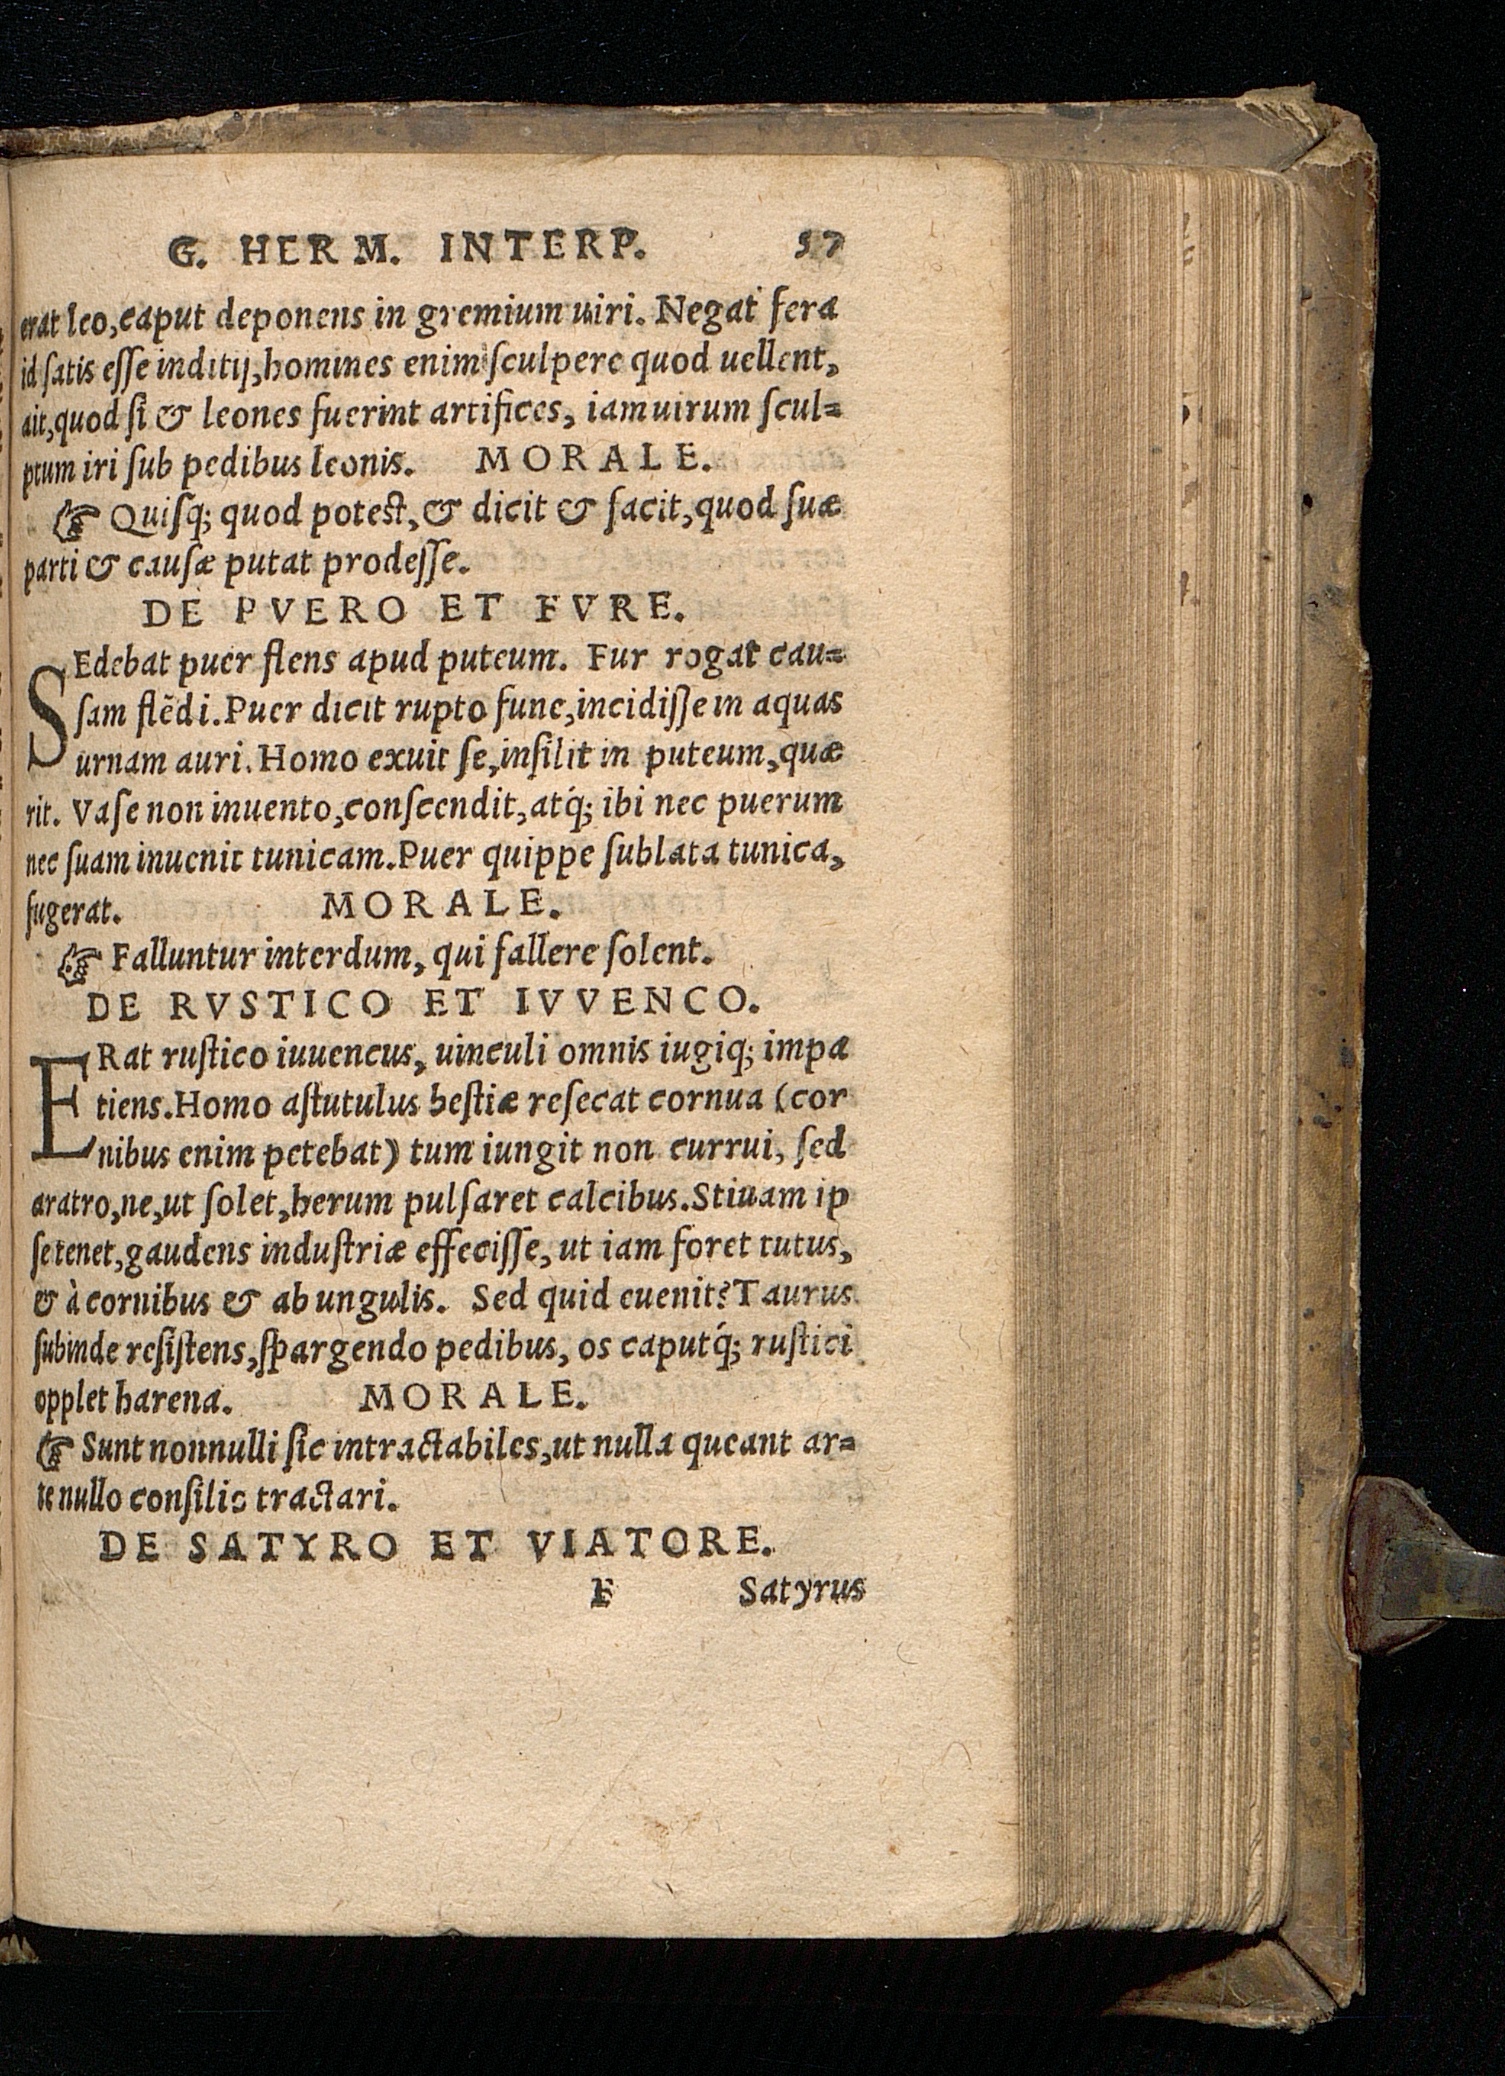 G. HERM. INTERP. 57
erat leo, caput deponens in gremium uiri. Negat fera
id ſatis eſſe inditij, homines enim ſculpere quod uellent,
ait, quod ſi & leones fuerint artifices, iam uirum ſcul=
ptum iri ſub pedibus leonis. MORALE.
☞ Quiſq; quod poteſt, & dicit & facit, quod ſuæ
parti & cauſæ putat prodeſſe.
DE PVERO ET FVRE.
SEdebat puer flens apud puteum. Fur rogat cau=
ſam flēdi. Puer dicit rupto fune, incidiſſe in aquas
urnam auri. Homo exuit ſe, inſilit in puteum, quæ
rit. Vaſe non inuento, conſcendit, atq́; ibi nec puerum
nec ſuam inuenit tunicam. Puer quippe ſublata tunica,
fugerat. MORALE.
☞ Falluntur interdum, qui fallere ſolent.
DE RVSTICO ET IVVENCO.
ERat ruſtico iuuencus, uinculi omnis iugiq; impa
tiens. Homo aſtutulus beſtiæ reſecat cornua (cor
nibus enim petebat) tum iungit non currui, ſed
aratro, ne, ut ſolet, herum pulſaret calcibus. Stiuam ip
ſe tenet, gaudens induſtriæ effeciſſe, ut iam foret tutus,
& à cornibus & ab ungulis. Sed quid euenit? Taurus
ſubinde reſiſtens, ſpargendo pedibus, os caputq́; ruſtici
opplet harena. MORALE.
☞ Sunt nonnulli ſic intractabiles, ut nulla queant ar=
te nullo conſilio tractari.
DE SATYRO ET VIATORE.
F Satyrus